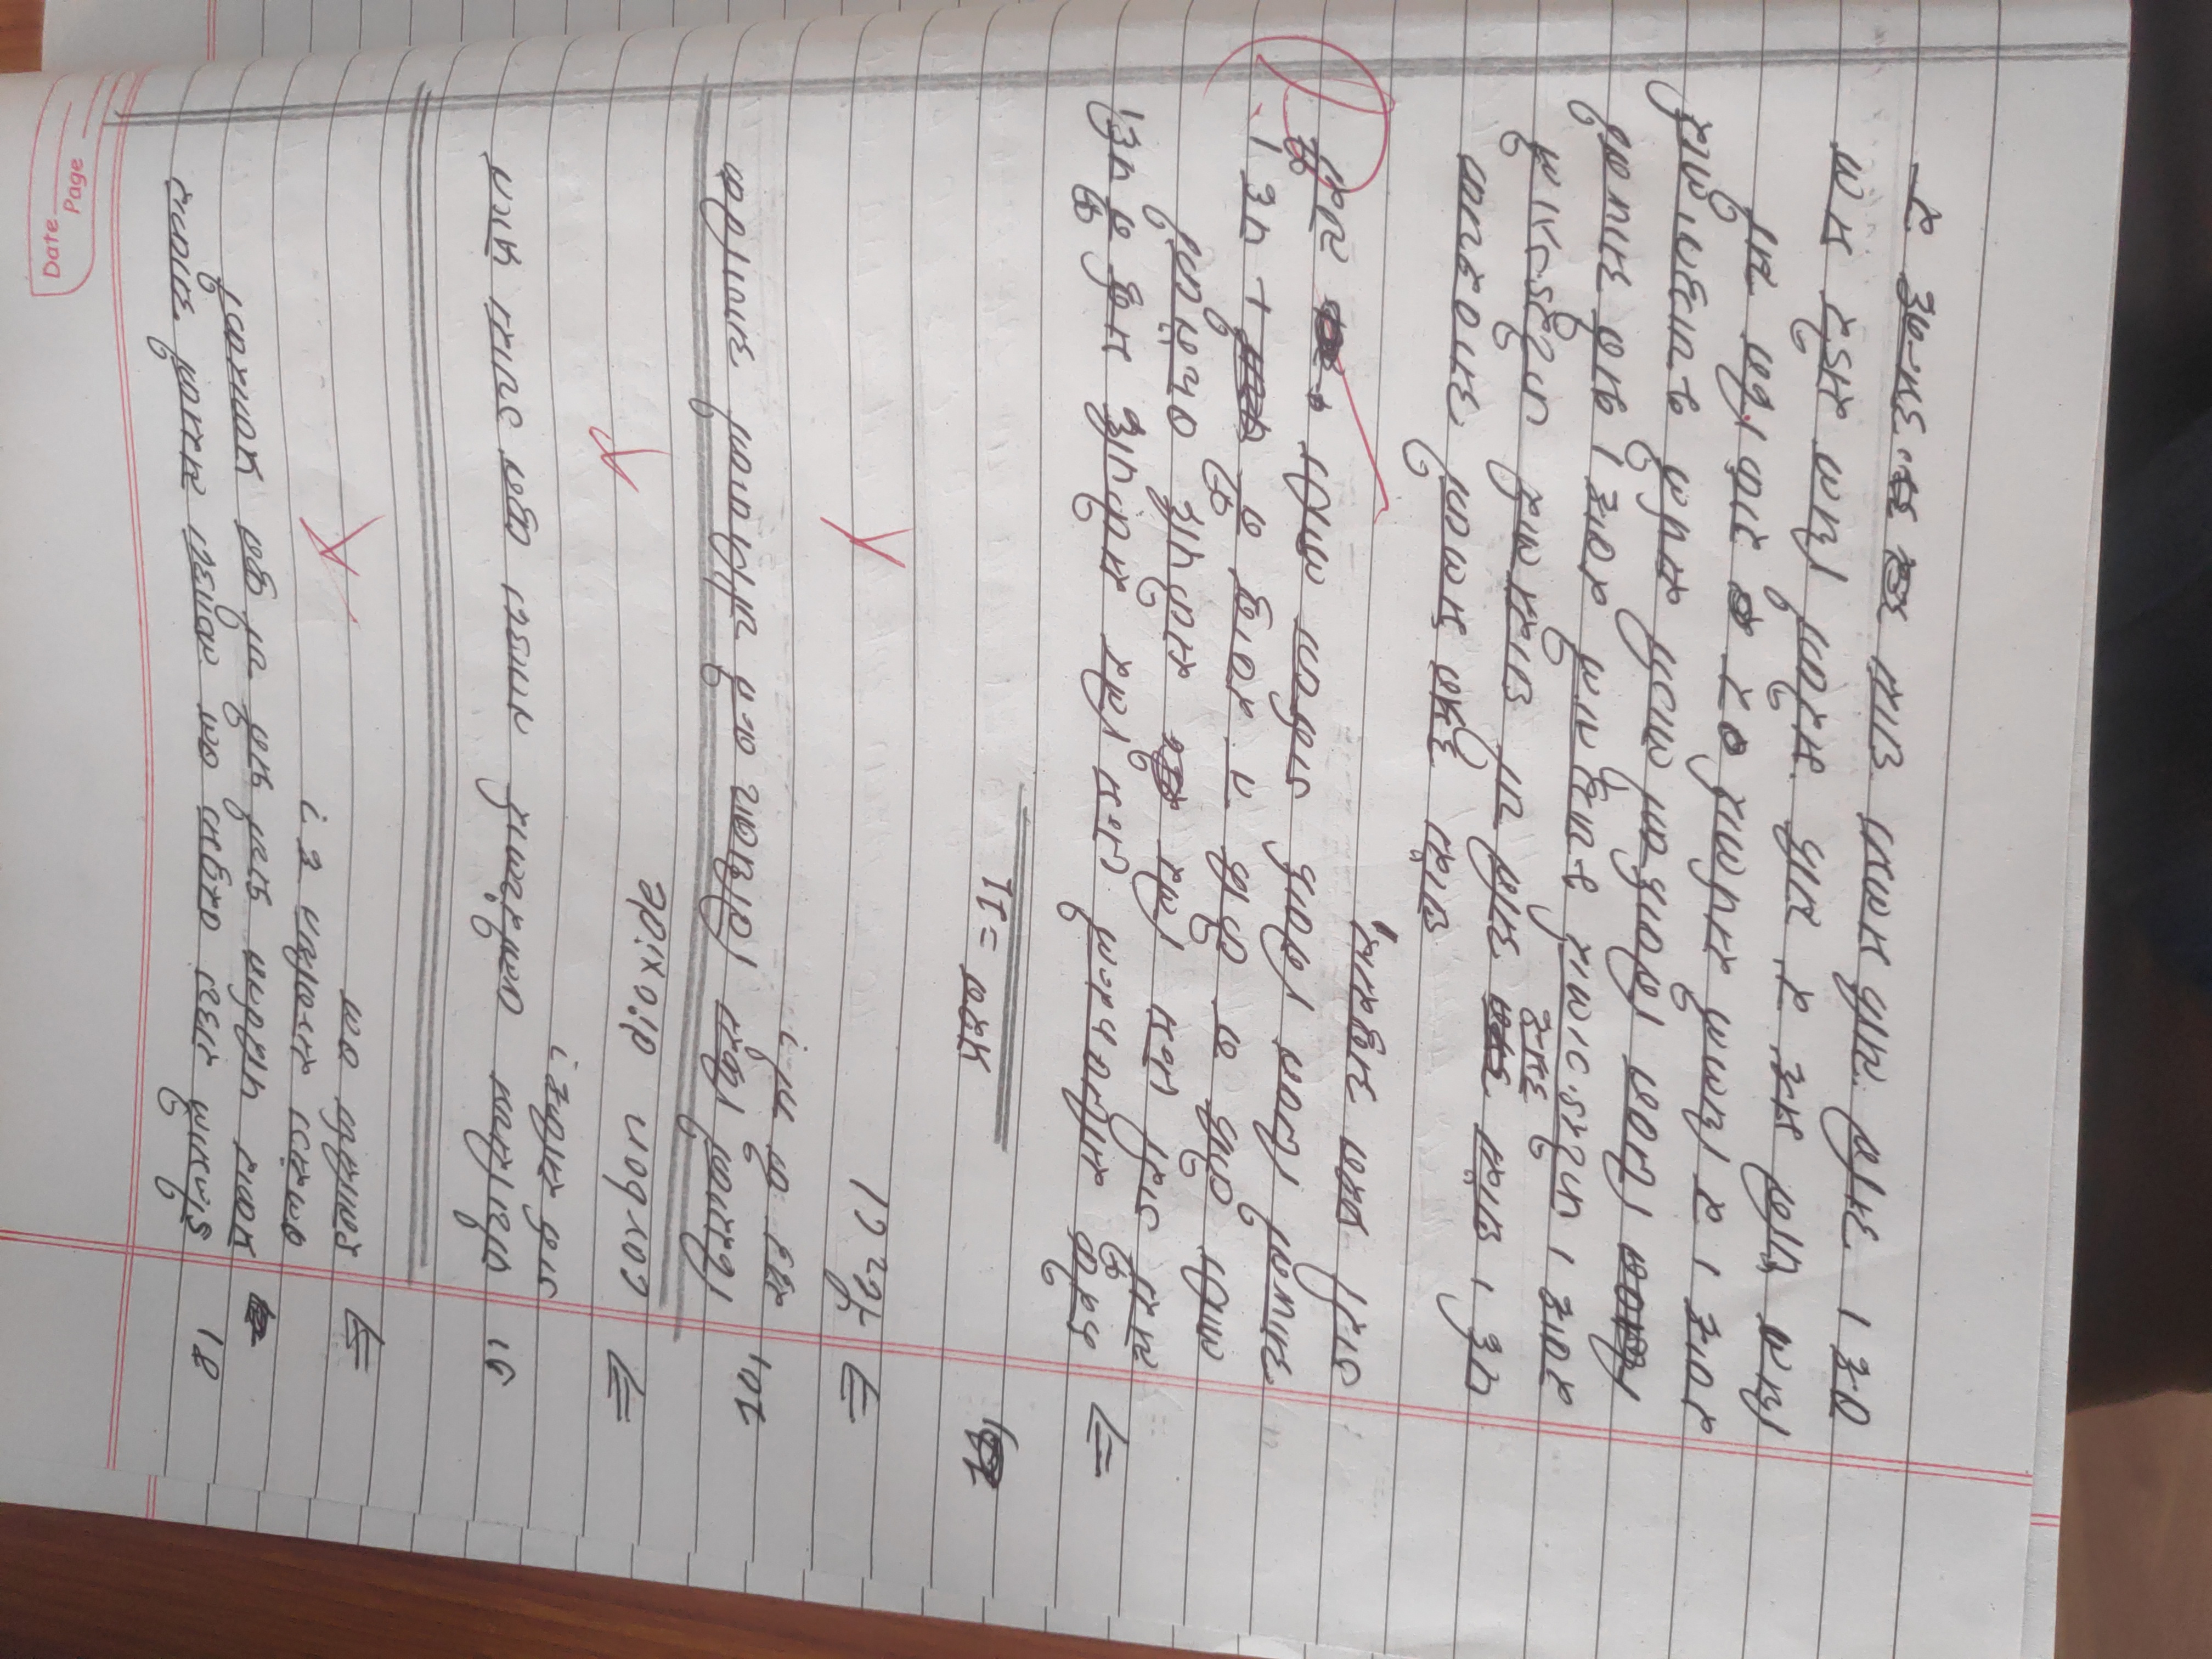 Date
Page
8। डोल्माले एउटा वस्तुमा बल लगाउदा त्यसको आकार
प्रकार परिर्वतन भयो भने यो कुन प्रकारको
बलसंग सम्बन्धित छ?
⇒ इलासिर्क बल
9। पोटासियम क्लोरेटलाई तताउदा कुन ग्यास प्राप्त
गर्न सकिन्छ?
⇒ carbon dioxide
10। दिइएको क्रिस विधिबाट बन्ने यौगिकको आणविक
सुत्र के हो?
⇒ Cl
प्रश्न = 11
⇒ हरेक सजिवहरुले जन्म लिए सकेपछि मर्नु नै पर्छ।
त्यसै गरी जन्म लिए सकेपछि बाच्नको
लागि केहि न केहि त खानु नै पछ।
आफ्नो जिवन निर्वाह गर्नका लागि त्यसै
गरी प्रश्न अनुसार,
घाँस उम्रन मलको आवश्यक
पर्छ। घाँस उम्रन्छ अनि यो घासलाई फटेङ्ग्राले
खान्छ। फटेङग्रालाई भ्यागुताले खान्छ। भने आफ्नो
जिवन निर्वाहको लागी सर्पले भ्यागुतालाई
खान्छ। र चिलले सर्पलाई र एक दिन त्यो
चिल पनि मर्छ र त्यहि मरेको चिल सडेर मल
बन्छ। अनि त्यहि मलमा घास उमन्नछ र